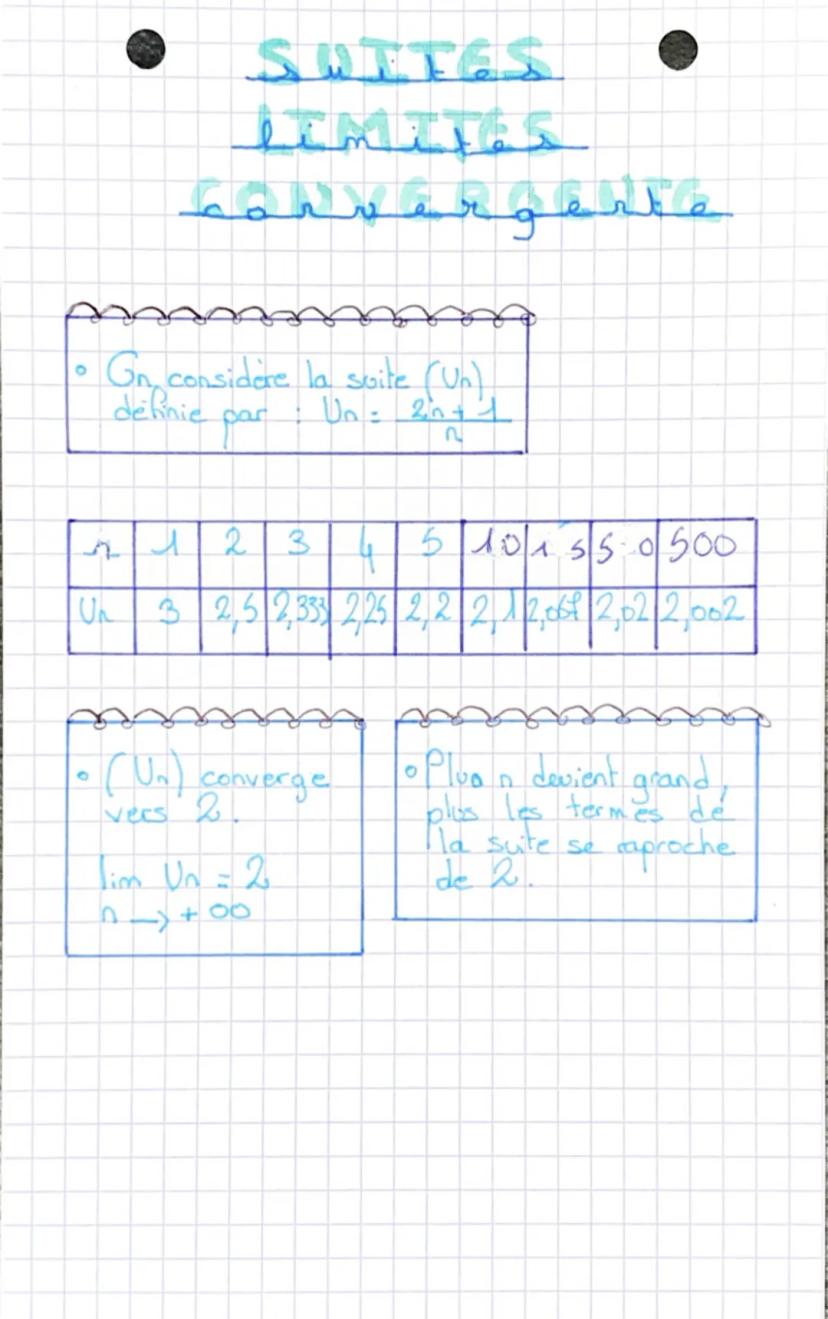 SUITES
suites
LIMITES
limites
CONVERGENTE
convergente
• On considère la suite (Un)
définie par : Un = 2n + 1
n
n 1 2 3 4 5 10 15 50 500
Un 3 2,5 2,333 2,25 2,2 2,1 2,067 2,02 2,002
• (Un) converge
vers 2.
lim Un = 2
n → + ∞
• Plus n devient grand,
plus les termes de
la suite se raproche
de 2.